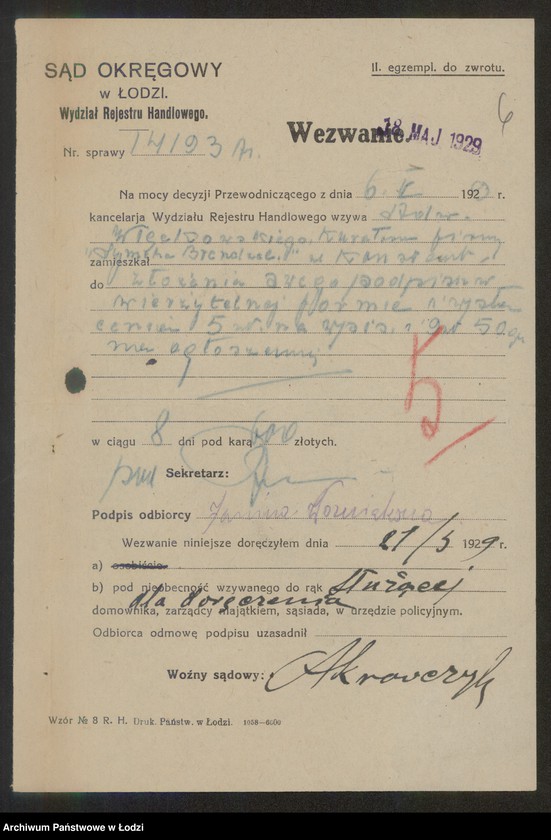 SĄD OKRĘGOWY
w ŁODZI.
Wydział Rejestru Handlowego.
II. egzempl. do zwrotu.
6
Wezwanie.
18 MAJ 1929
Nr. sprawy 14193
Na mocy decyzji Przewodniczącego z dnia 6 V 1929 r.
kancelarja Wydziału Rejestru Handlowego wzywa
Więckowskiego, kuratora firmy
zamieszkał
do złożenia swego podpisu w
wierzytelnej formie i
5 zł. na wpis i 9 zł 50 gr
na ogłoszenie
w ciągu 8 dni pod karą 600 złotych.
Sekretarz:
Podpis odbiorcy Janina
Wezwanie niniejsze doręczyłem dnia 21/5 1929 r.
a) osobiście
b) pod nieobecność wzywanego do rąk służącej
dla doręczenia
domownika, zarządcy majątkiem, sąsiada, w urzędzie policyjnym.
Odbiorca odmowę podpisu uzasadnił
Woźny sądowy: AKrawczyk
Wzór № 8 R. H. Druk. Państw. w Łodzi.
Archiwum Państwowe w Łodzi